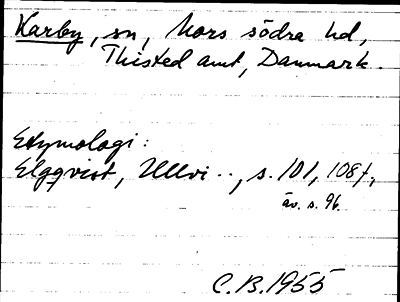 Karby, sn, Mors södra hd,
Thisted amt, Danmark.
Etymologi:
Elgqvist, Ullvi.., s. 101, 108f,
äv. s. 96.
C.B. 1955